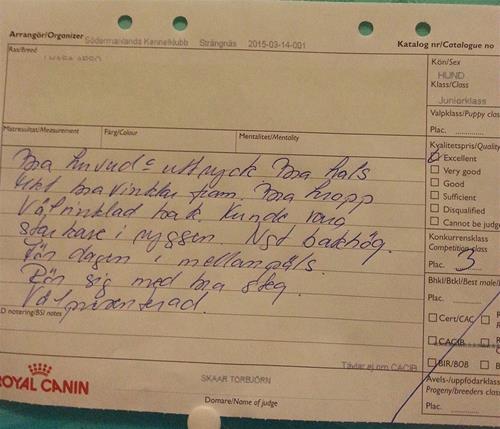 Arrangör/Organizer Södermanlands Kennelklubb Strängnäs 2015-03-14-001 Katalog nr/Catalogue no
Ras/Breed
Kön/Sex
HUND
Klass/Class
Juniorklass
Valpklass/Puppy clas
Plac.
Matresultat/Measurement Färg/Colour Mentalitet/Mentality
Kvalitetspris/Quality
Excellent
Very good
Good
Sufficient
Disqualified
Cannot be judg
Bra huvud & uttryck. Bra hals
bra vinklar fram. Bra kropp
Välvinklad bak. Kunde vara
starkare i ryggen. Ngt bakhög.
För dagen i mellanpäls.
Rör sig med bra steg.
Välpresenterad.
Konkurrensklass
Competition class
Plac. 3
Bhkl/Btkl/Best male/
Plac.
Cert/CAC R
CACIB R
BIR/BOB B
D notering/BSI notes
Tävlar ej om CACIB
Avels-/uppfödarklass
Progeny/breeders class
Plac.
ROYAL CANIN
SKAAR TORBJÖRN
Domare/Name of judge